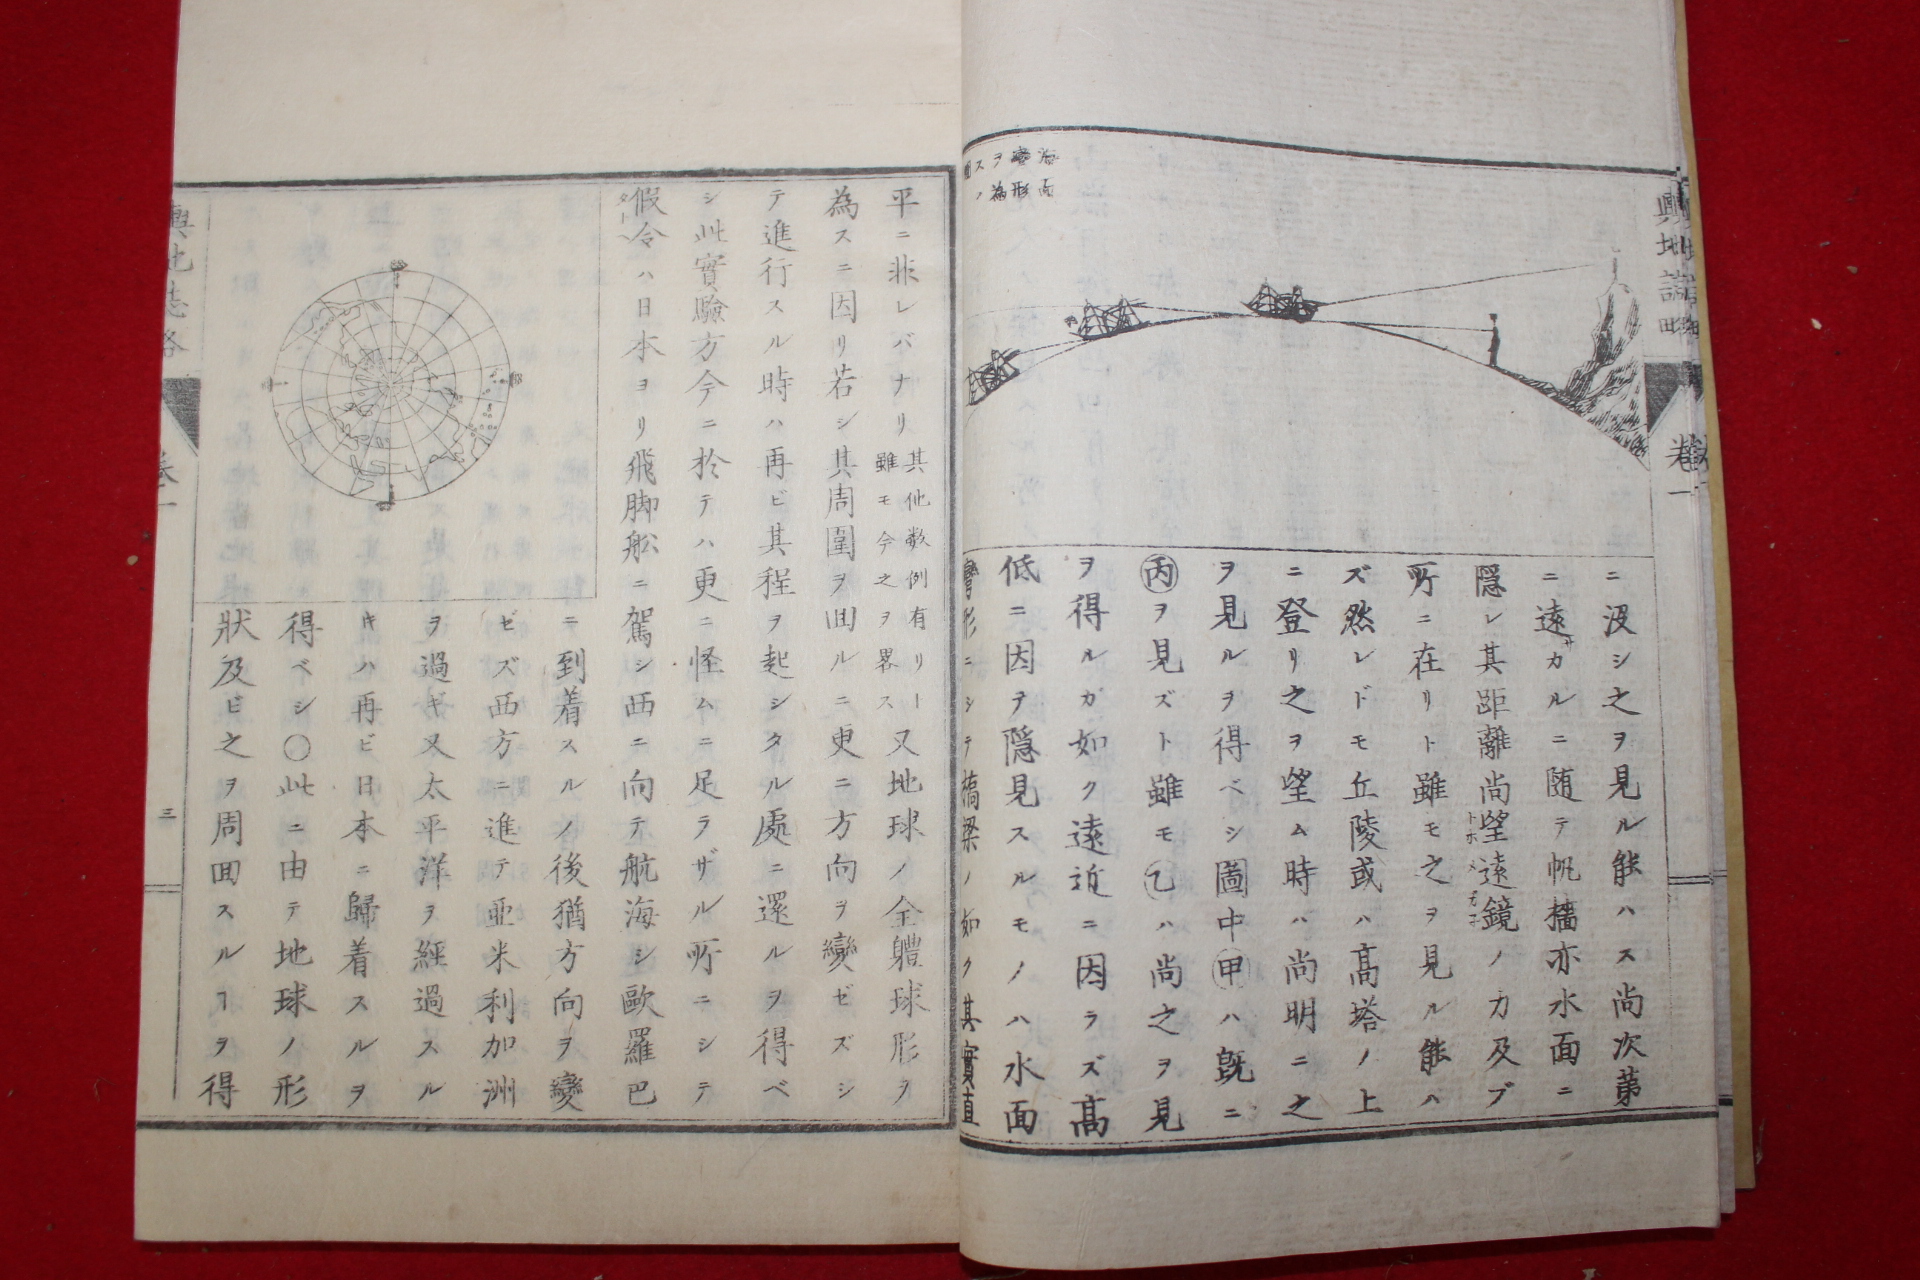 輿地誌略
卷一
海面
彎形
ヲ為
スノ
圖
ニ沒シ之ヲ見ル能ハス尚次第
ニ遠サカルニ随テ帆檣亦水面ニ
隠レ其距離尚望遠鏡ノ力及ブ
所ニ在リト雖モ之ヲ見ル能ハ
ズ然レドモ丘陵或ハ高塔ノ上
ニ登リ之ヲ望ム時ハ尚明ニ之
ヲ見ルヲ得ベシ圖中甲ハ既ニ
丙ヲ見ズト雖モ乙ハ尚之ヲ見
ヲ得ルガ如ク遠近ニ因ラズ高
低ニ因ヲ隠見スルモノハ水面
彎形ニシテ橋梁ノ如ク其實直
平ニ非レバナリ其他数例有リヿ雖モ今之ヲ畧ス又地球ノ全體球形ヲ
為スニ因リ若シ其周圍ヲ囬ルニ更ニ方向ヲ變ゼズシ
テ進行スル時ハ再ビ其程ヲ起シタル處ニ還ルヲ得ベ
シ此實驗方今ニ於テハ更ニ怪ムニ足ラザル所ニシテ
假令ハ日本ヨリ飛脚舩ニ駕シ西ニ向テ航海シ歐羅巴
ニ到着スルノ後猶方向ヲ變
ゼズ西方ニ進テ亜米利加洲
ヲ過ギ又太平洋ヲ經過スル
キハ再ビ日本ニ歸着スルヲ
得ベシ〇此ニ由テ地球ノ形
狀及ビ之ヲ周囬スルヿヲ得
輿地誌略
卷一
三